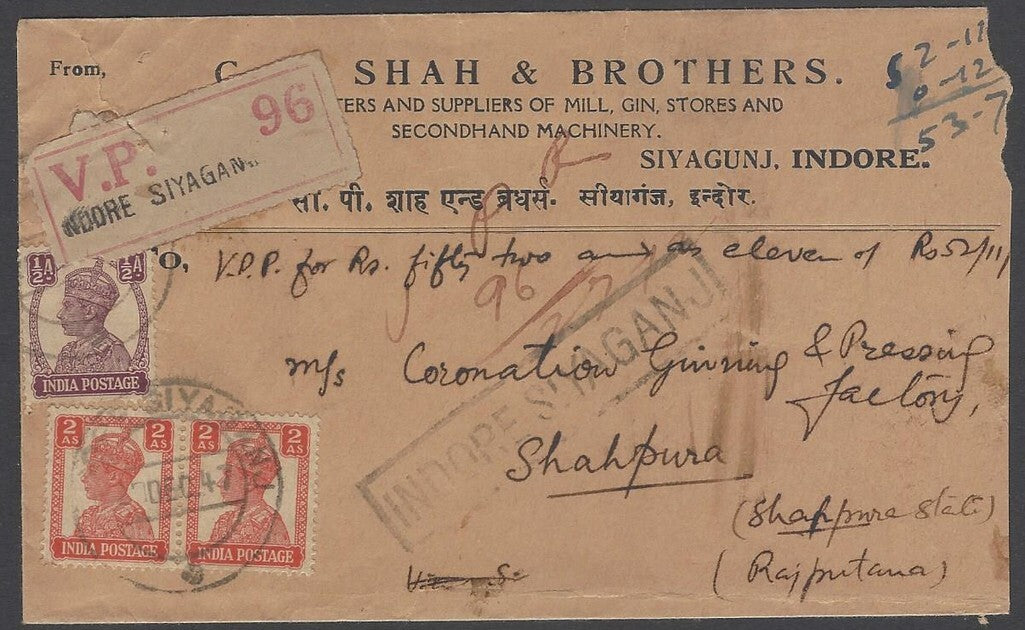 From,
SHAH & BROTHERS.
TERS AND SUPPLIERS OF MILL, GIN, STORES AND
SECONDHAND MACHINERY.
SIYAGUNJ, INDORE.
सी. पी. शाह एन्ड ब्रधर्स. सीयागंज, इन्दोर.
52-11
0-12
53-7
V.P. 96
NDORE SIYAGAN
O, V.P.P. for Rs. fifty two and as eleven of Rs 52/11/
96
½A ½A
INDIA POSTAGE
M/s Coronation Ginning & Pressing
factory,
Shahpura
(Shahpura State)
(Rajputana)
INDORE SIYAGANJ
SIYA
DEC 47
2 AS 2 AS 2 AS 2 AS
INDIA POSTAGE INDIA POSTAGE